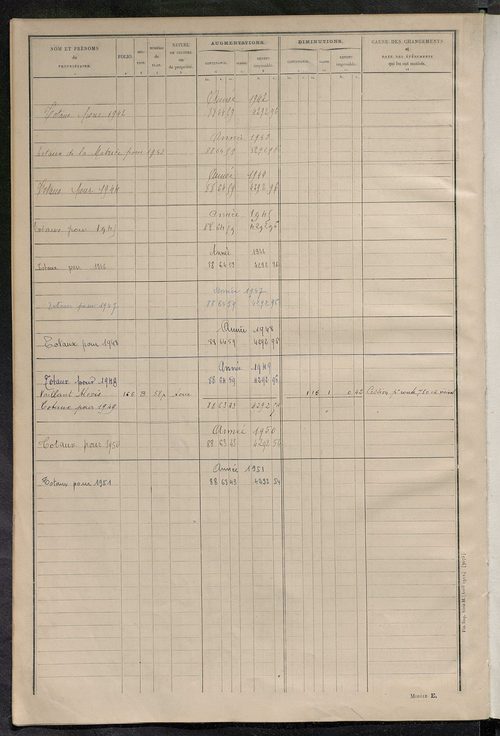 NOM ET PRÉNOMS du PROPRIÉTAIRE. FOLIO. NATURE DE CULTURE ou de propriété. AUGMENTATIONS. DIMINUTIONS. CAUSE DES CHANGEMENTS et DATE DES ÉVÉNEMENTS qui les ont motivés.
CONTENANCE. CLASSE. REVENU imposable. CONTENANCE. CLASSE. REVENU imposable.
Année 1942
Totaux pour 1942 88 64 59 4292 96
Année 1943
Totaux de la Matrice pour 1943 88 64 59 4292 96
Année 1944
Totaux pour 1944 88 64 59 4292 96
Année 1945
Totaux pour 1945 88 64 59 4292 96
Année 1946
Totaux pour 1946 88 64 59 4292 96
Année 1947
Totaux pour 1947 88 64 59 4292 96
Année 1948
Totaux pour 1948 88 64 59 4292 96
Année 1949
Totaux pour 1948 88 64 59 4292 96
Vaillant 166 B 1 16 1 0 42
Totaux pour 1949 88 63 43 4292 54
Année 1950
Totaux pour 1950 88 63 43 4292 54
Année 1951
Totaux pour 1951 88 63 43 4292 54
MODÈLE E.